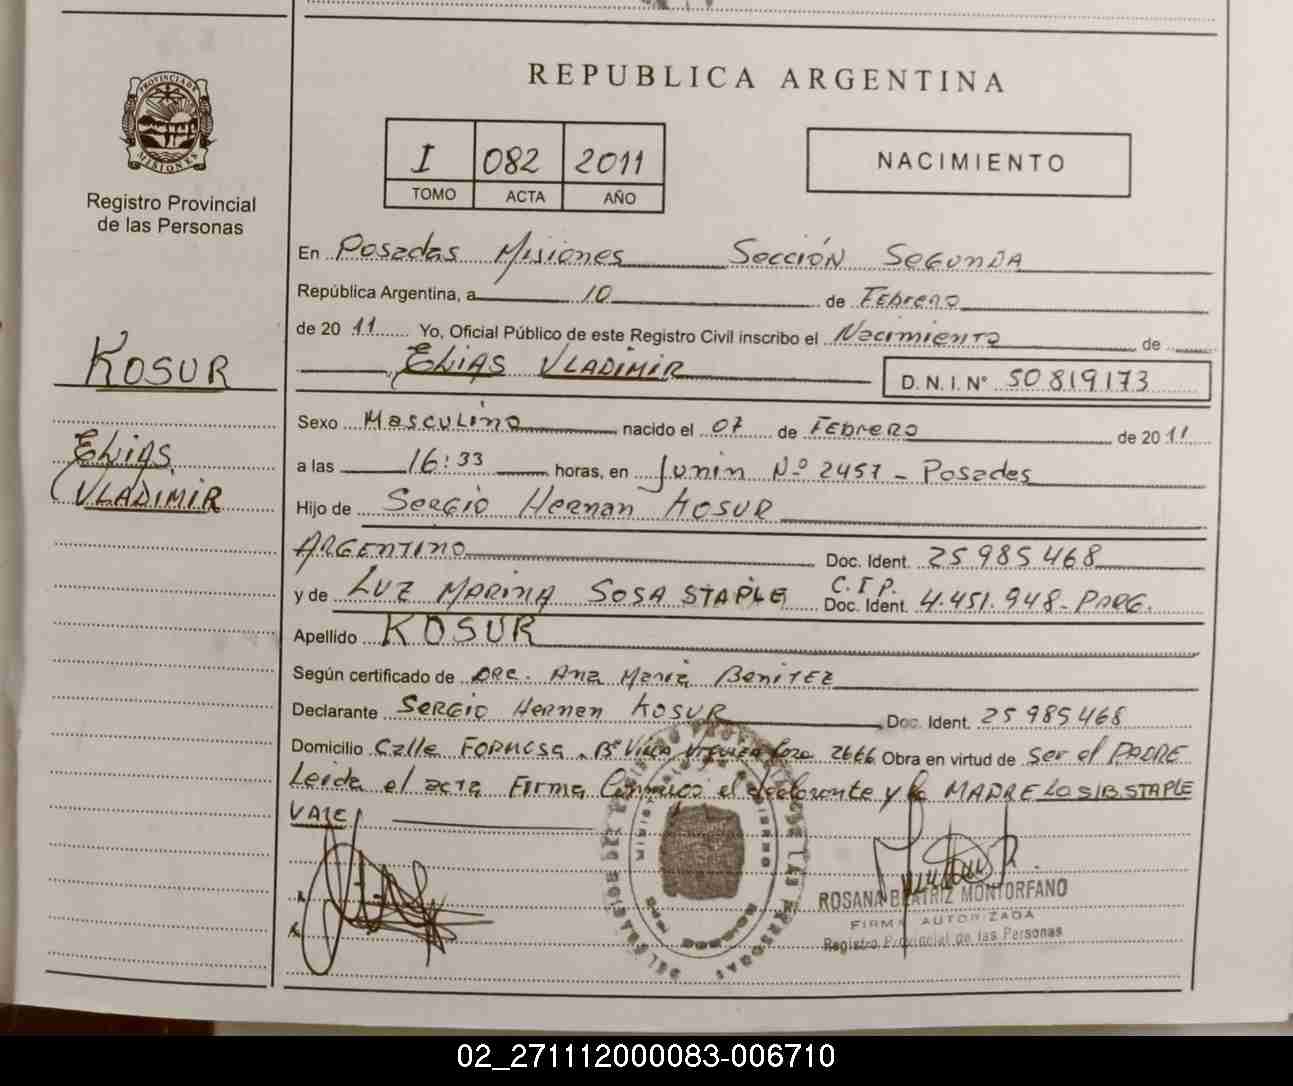 PROVINCIA DE
MISIONES
Registro Provincial
de las Personas
KOSUR
ELIAS
VLADIMIR
REPUBLICA ARGENTINA
I 082 2011
TOMO ACTA AÑO
NACIMIENTO
En Posadas Misiones Sección Segunda
República Argentina, a 10 de Febrero
de 2011 Yo, Oficial Público de este Registro Civil inscribo el Nacimiento de
ELIAS VLADIMIR D.N.I.Nº 50819173
Sexo Masculino nacido el 07 de FEBRERO de 2011
a las 16:33 horas, en Junin Nº 2457 - Posadas
Hijo de Sergio Hernan KOSUR
ARGENTINO Doc. Ident. 25985468
y de LUZ MARINA SOSA STAPLE C.I.P. Doc. Ident. 4.451.948- PARG.
Apellido KOSUR
Según certificado de Ana Maria BENITEZ
Declarante SERGIO Hernan KOSUR Doc. Ident. 25985468
Domicilio Calle FORMOSA, Bº VILLA 2666 Obra en virtud de Ser el PADRE
Leida el acta Firma el declarante y la MADRE STAPLE
VALE
ROSANA BEATRIZ MONTORFANO
FIRMA AUTORIZADA
Registro Provincial de las Personas
02_271112000083-006710